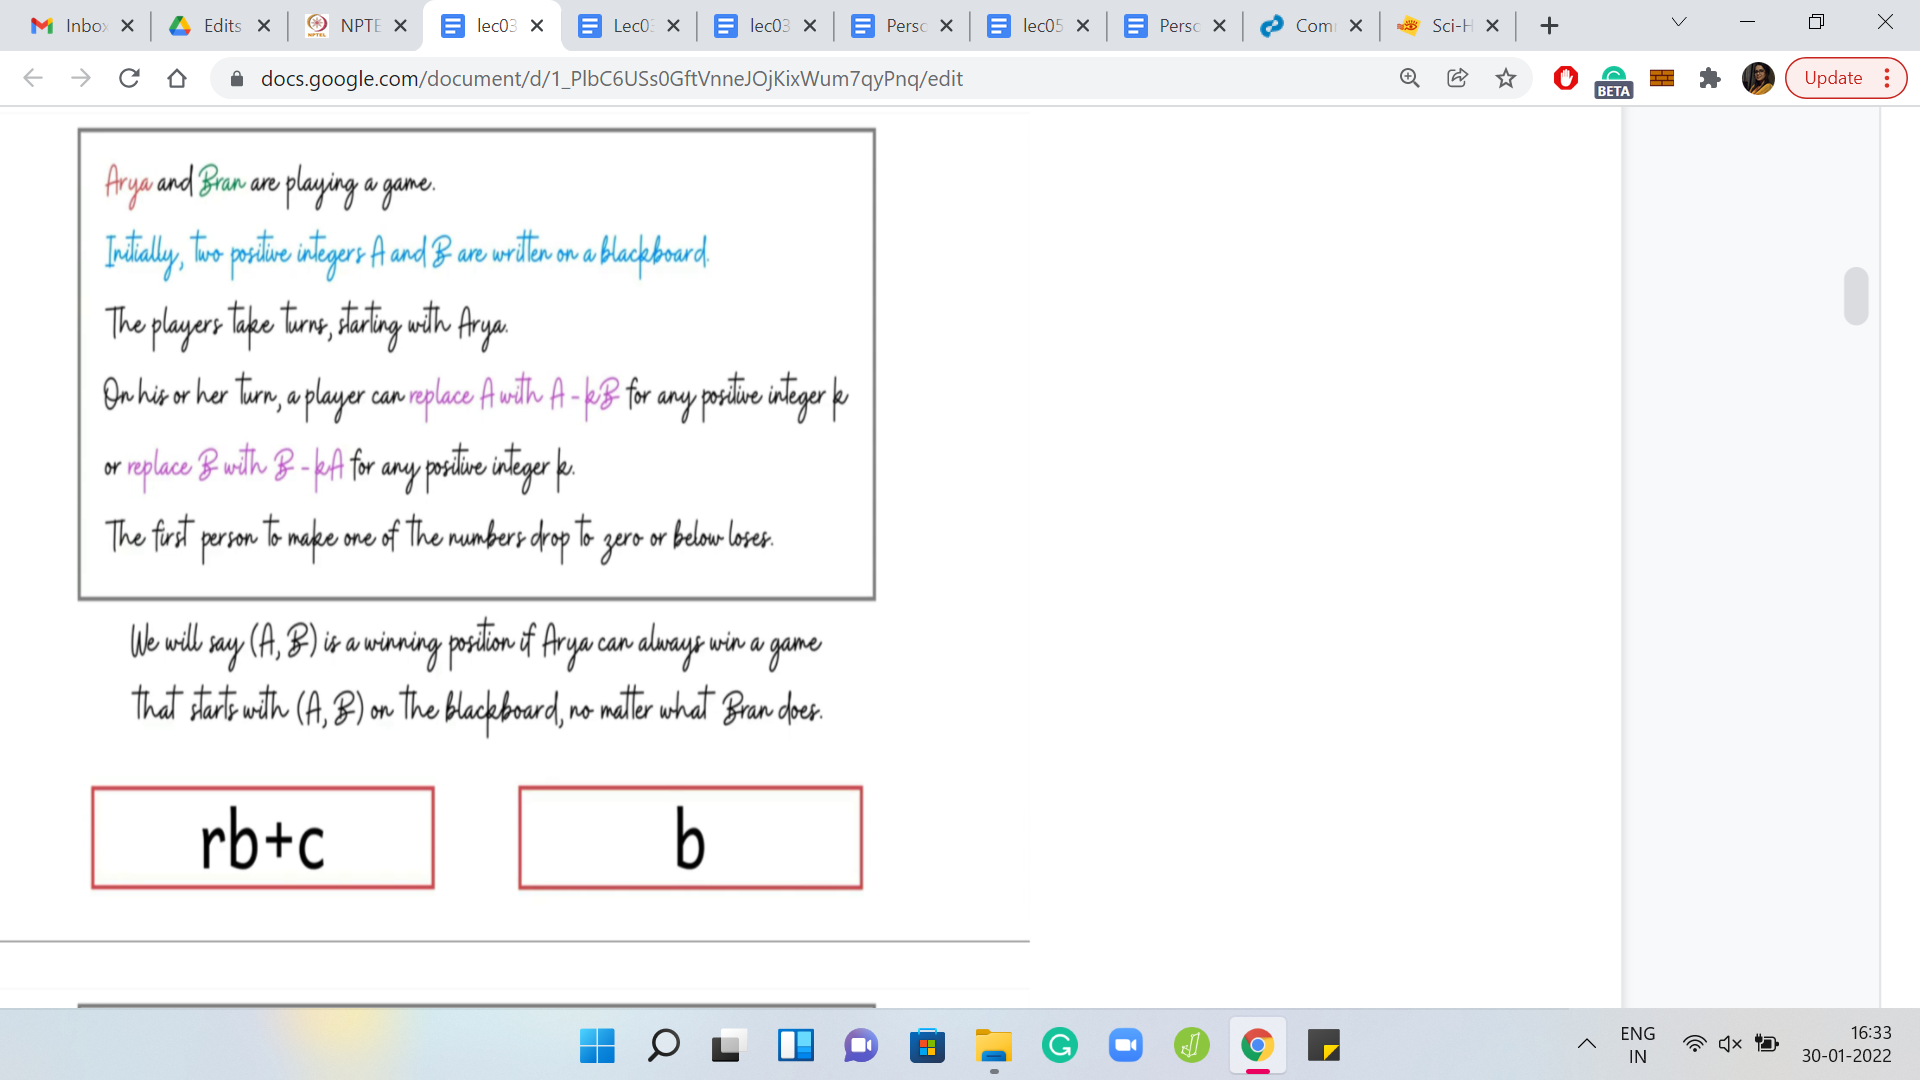 Inbox
Edits
NPTE
lec03
Lec03
lec03
Perso
lec05
Perso
Com
Sci-H
docs.google.com/document/d/1_PlbC6USs0GftVnneJOjKixWum7qyPnq/edit
BETA
Update
Arya and Bran are playing a game.
Initially, two positive integers A and B are written on a blackboard.
The players take turns, starting with Arya.
On his or her turn, a player can replace A with A - kB for any positive integer k
or replace B with B - kA for any positive integer k.
The first person to make one of the numbers drop to zero or below loses.
We will say (A, B) is a winning position if Arya can always win a game
that starts with (A, B) on the blackboard, no matter what Bran does.
rb+c
b
ENG
IN
16:33
30-01-2022